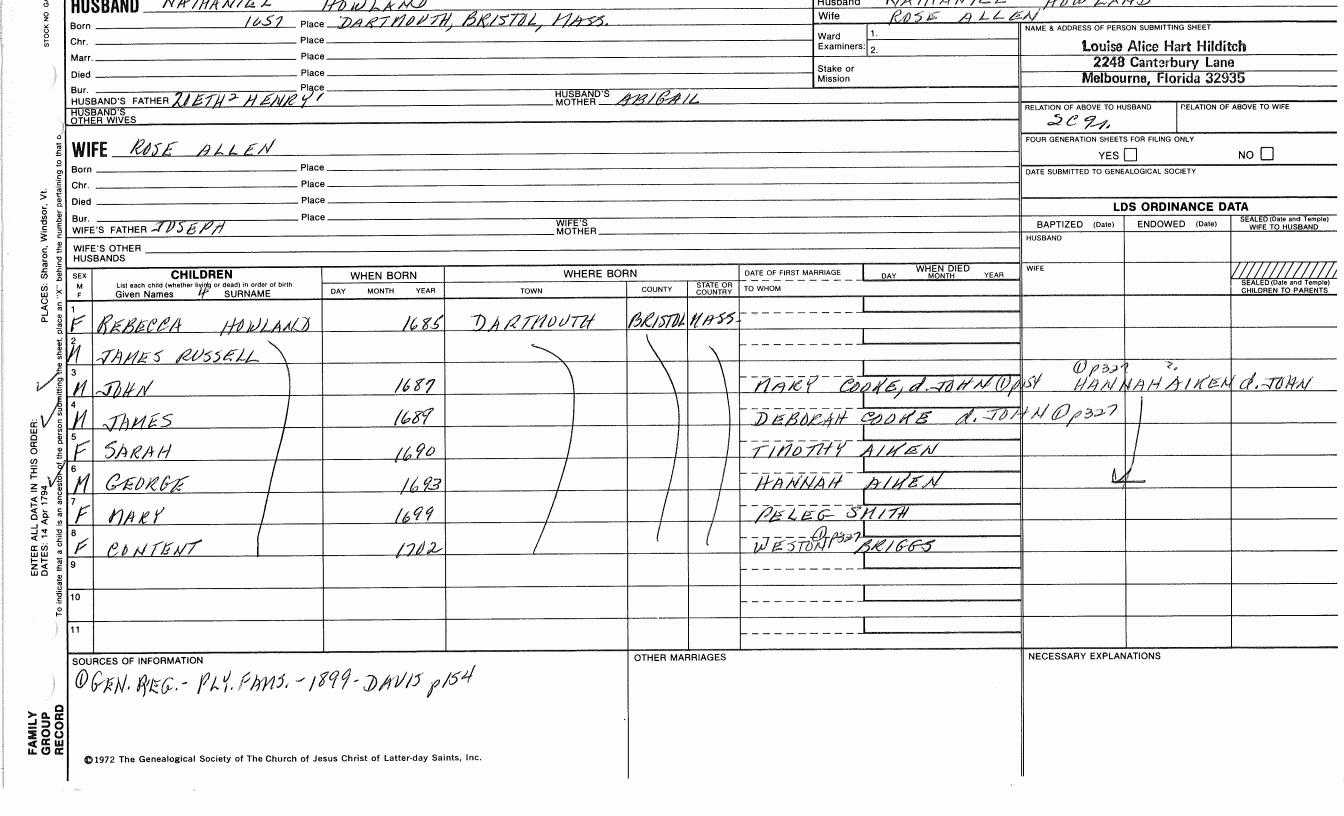 HUSBAND NATHANIEL HOWLAND
Husband NATHANIEL HOWLAND
Born 1657 Place DARTMOUTH, BRISTOL, MASS.
Wife ROSE ALLEN
Chr. Place
Marr. Place
Died Place
Bur. Place
Ward Examiners: 1. 2.
Stake or Mission
NAME & ADDRESS OF PERSON SUBMITTING SHEET
Louise Alice Hart Hilditch
2248 Canterbury Lane
Melbourne, Florida 32935
HUSBAND'S FATHER HENRY¹ HUSBAND'S MOTHER ABIGAIL
HUSBAND'S OTHER WIVES
RELATION OF ABOVE TO HUSBAND RELATION OF ABOVE TO WIFE
FOUR GENERATION SHEETS FOR FILING ONLY
YES NO
DATE SUBMITTED TO GENEALOGICAL SOCIETY
WIFE ROSE ALLEN
Born Place
Chr. Place
Died Place
Bur. Place
WIFE'S FATHER JOSEPH WIFE'S MOTHER
WIFE'S OTHER HUSBANDS
LDS ORDINANCE DATA
BAPTIZED (Date) ENDOWED (Date) SEALED (Date and Temple) WIFE TO HUSBAND
HUSBAND
WIFE
SEALED (Date and Temple) CHILDREN TO PARENTS
SEX M F
CHILDREN
List each child (whether living or dead) in order of birth
Given Names 4 SURNAME
WHEN BORN
DAY MONTH YEAR
WHERE BORN
TOWN COUNTY STATE OR COUNTRY
DATE OF FIRST MARRIAGE
TO WHOM
WHEN DIED
DAY MONTH YEAR
1 F REBECCA HOWLAND 1685 DARTMOUTH BRISTOL MASS.
2 M JAMES RUSSELL
① p327 2.
3 M JOHN 1687 MARY COOKE, d. JOHN ① p154 HANNAH AIKEN d. JOHN
4 M JAMES 1689 DEBORAH COOKE d. JOHN ① p327
5 F SARAH 1690 TIMOTHY AIKEN
6 M GEORGE 1693 HANNAH AIKEN
7 F MARY 1699 PELEG SMITH
8 F CONTENT 1702 WESTON ① p327 BRIGGS
9
10
11
SOURCES OF INFORMATION
① GEN. REG. - PLY. FAMS. - 1899 - DAVIS p154
OTHER MARRIAGES
NECESSARY EXPLANATIONS
©1972 The Genealogical Society of The Church of Jesus Christ of Latter-day Saints, Inc.
FAMILY GROUP RECORD
ENTER ALL DATA IN THIS ORDER:
DATES: 14 Apr 1794
PLACES: Sharon, Windsor, Vt.
To indicate that a child is an ancestor of the person submitting the sheet, place an "X" behind the number pertaining to that
STOCK NO